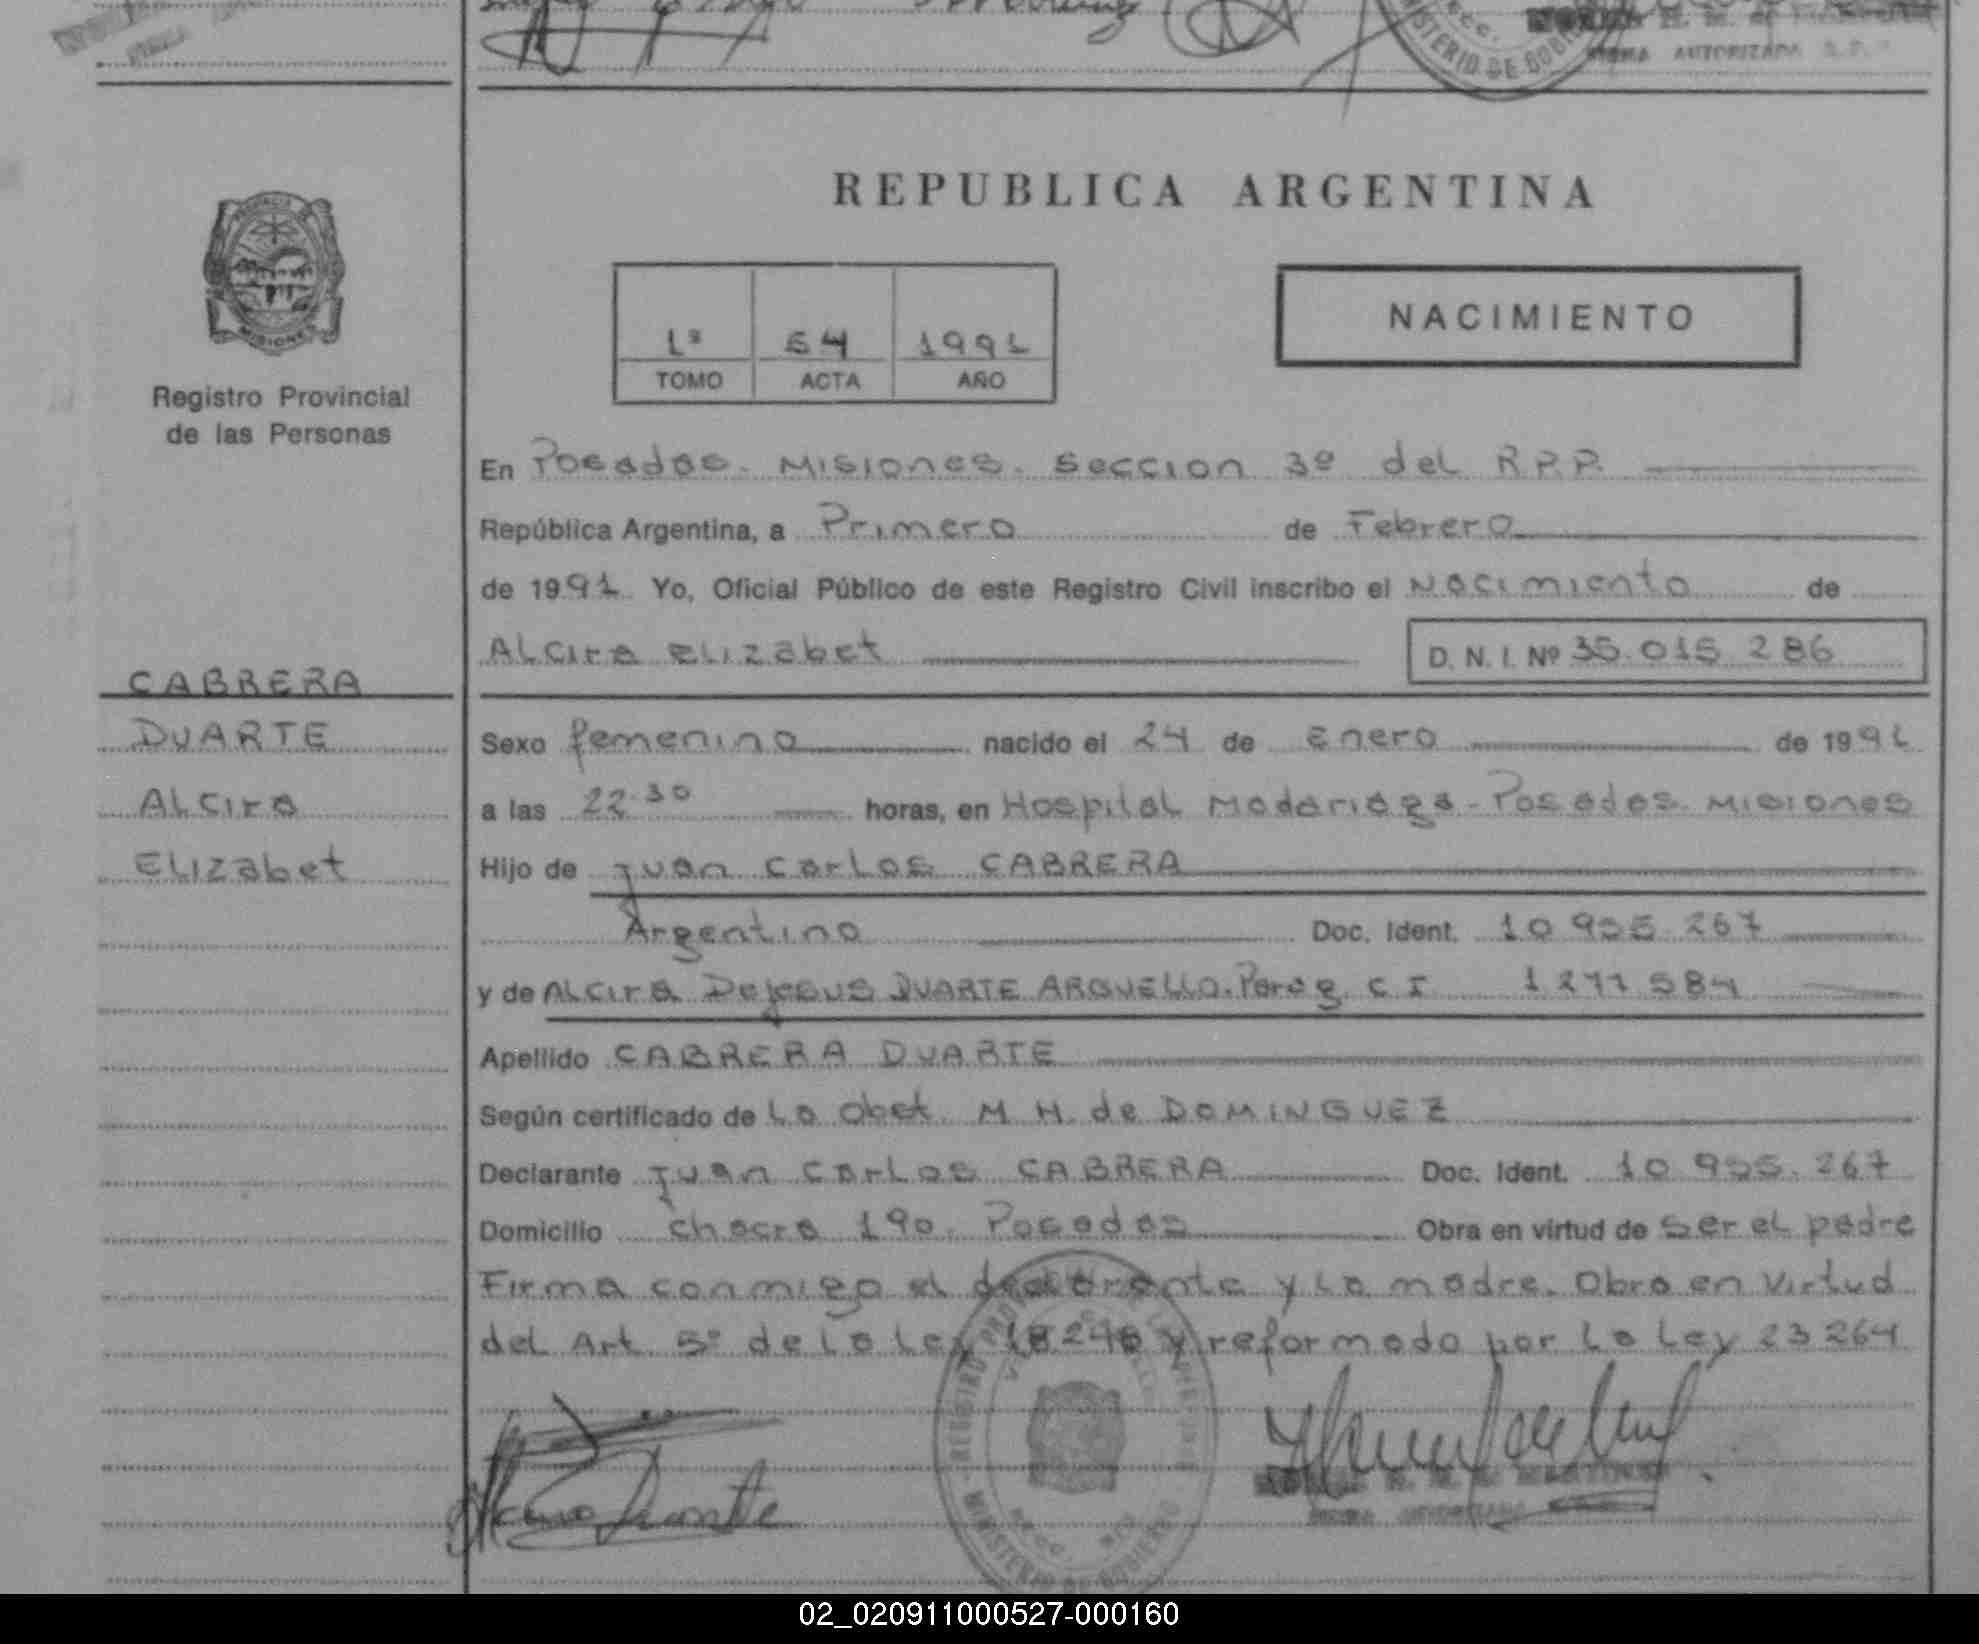 MINISTERIO DE GOBI
FIRMA AUTORIZADA
REPUBLICA ARGENTINA
MISIONES
Registro Provincial
de las Personas
1º 54 1991
TOMO ACTA AÑO
NACIMIENTO
En Posadas. Misiones. Seccion 3º del R.P.P.
República Argentina, a Primero de Febrero
de 1991. Yo, Oficial Público de este Registro Civil inscribo el Nacimiento de
Alcira Elizabet D. N. I. Nº 35.015.286
CABRERA
DUARTE
Alcira
Elizabet
Sexo femenino nacido el 24 de Enero de 1991
a las 22.30 horas, en Hospital Madariaga - Posadas. Misiones
Hijo de Juan Carlos CABRERA
Argentino Doc. Ident. 10 955.267
y de Alcira Dejesus DUARTE ARGUELLO. Parag. C I 1 277 584
Apellido CABRERA DUARTE
Según certificado de la obst. M H. de DOMINGUEZ
Declarante Juan Carlos CABRERA Doc. Ident. 10 955.267
Domicilio chacra 190. Posadas Obra en virtud de Ser el padre
Firma conmigo el declarante y la madre. Obra en virtud
del Art. 5º de la Ley 18.248 y reformado por la Ley 23 264
MINISTERIO DE GOBIERNO
02_020911000527-000160